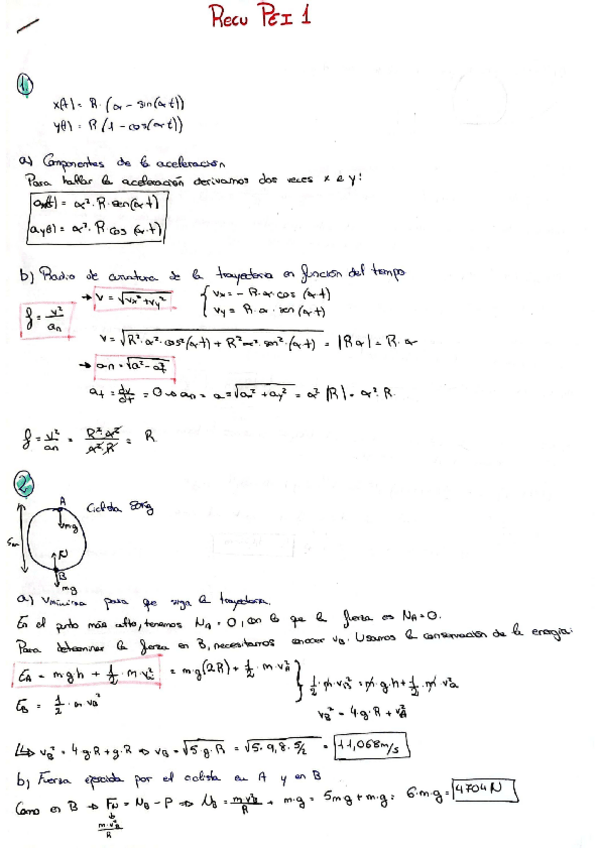 Recu PEI 1
1
x(t) = R·(α - sin(α t))
y(t) = R(1 - cos(α t))
a) Componentes de la aceleración
Para hallar la aceleración derivamos dos veces x e y:
ax(t) = α²·R·sen(α t)
ay(t) = α²·R cos(α·t)
b) Radio de curvatura de la trayectoria en función del tiempo
→ v = √(vx² + vy²) { vx = - R·α·cos(α t)
ρ = v²/an vy = R·α·sen(α t)
v = √(R²·α²·cos²(α t) + R²α²·sen²·(α t)) = |Rα| = R·α
→ an = √(a² - at²)
at = dv/dt = 0 → an = a = √(ax² + ay²) = α²|R| = α²·R
ρ = v²/an = R²·α²/α²·R = R
2
A Ciclista 80kg
mg
5m
N
B
mg
a) vmínima para que siga la trayectoria.
En el punto más alto, tenemos NA = 0, con lo que la fuerza es NA = 0.
Para determinar la fuerza en B, necesitamos conocer vB. Usamos la conservación de la energía:
EA = mgh + 1/2·m·va² = m·g(2R) + 1/2·m·vA² } 1/2·m·vB² = m·g·h + 1/2·m·va²
EB = 1/2·m vB² vB² = 4·g·R + vA²
↳ vB² = 4gR + g·R ⇒ vB = √(5·g·R) = √(5·9,8·5/2) = 11,068 m/s
b) Fuerza ejercida por el ciclista en A y en B
Como en B ⇒ FN = NB - P ⇒ NB = m·vB²/R + m·g = 5mg + m·g = 6·m·g = 4704 N
m·vB²/R